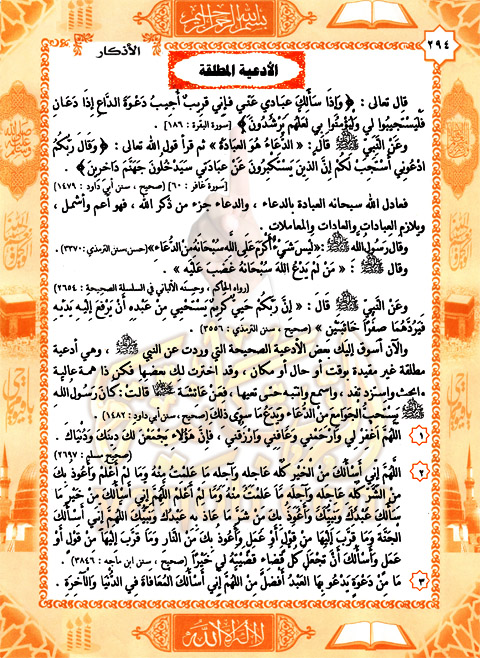 بسم الله الرحمن الرحيم
٢٩٤
الأذكار
الأدعية المطلقة
قال تعالى : ﴿ وَإِذَا سَأَلَكَ عِبَادِي عَنِّي فَإِنِّي قَرِيبٌ أُجِيبُ دَعْوَةَ الدَّاعِ إِذَا دَعَانِ
فَلْيَسْتَجِيبُوا لِي وَلْيُؤْمِنُوا بِي لَعَلَّهُمْ يَرْشُدُونَ ﴾ [سورة البقرة : ١٨٦] .
وعَنِ النَّبِيِّ ﷺ قَالَ : « الدُّعَاءُ هُوَ العِبَادَةُ » ثم قرأ قول الله تعالى : ﴿ وَقَالَ رَبُّكُمُ
ادْعُونِي أَسْتَجِبْ لَكُمْ إِنَّ الَّذِينَ يَسْتَكْبِرُونَ عَنْ عِبَادَتِي سَيَدْخُلُونَ جَهَنَّمَ دَاخِرِينَ ﴾ .
[سورة غافر : ٦٠] (صحيح ، سنن أبي داود : ١٤٧٩)
فعادل الله سبحانه العبادة بالدعاء ، والدعاء جزء من ذكر الله ، فهو أعم وأشمل ،
ويلازم العبادات والعادات والمعاملات .
وقال رسول الله ﷺ : «لَيْسَ شَيْءٌ أَكْرَمَ عَلَى اللهِ سُبْحَانَهُ مِنَ الدُّعَاءِ» (حسن، سنن الترمذي : ٣٣٧٠) .
وقال ﷺ : « مَنْ لَمْ يَدْعُ اللهَ سُبْحَانَهُ غَضِبَ عَلَيْهِ » .
(رواه الحاكم ، وحسنه الألباني في السلسلة الصحيحة : ٢٦٥٤)
وعَنِ النَّبِيِّ ﷺ قَالَ : « إِنَّ رَبَّكُمْ حَيِيٌّ كَرِيمٌ يَسْتَحْيِي مِنْ عَبْدِهِ أَنْ يَرْفَعَ إِلَيْهِ يَدَيْهِ
فَيَرُدَّهُمَا صِفْرًا خَائِبَتَيْنِ » (صحيح ، سنن الترمذي : ٣٥٥٦) .
والآن أسوق إليك بعض الأدعية الصحيحة التي وردت عن النبي ﷺ ، وهي أدعية
مطلقة غير مقيدة بوقت أو حال أو مكان ، وقد اخترت لك بعضها فكن ذا همة عالية
وابحث واستزد تفد ، واسمع وانتبه حتى تعيها ، فعَنْ عَائِشَةَ قالت : كَانَ رَسُولُ اللهِ
ﷺ يَسْتَحِبُّ الجَوَامِعَ مِنَ الدُّعَاءِ وَيَدَعُ مَا سِوَى ذَلِكَ (صحيح ، سنن أبي داود : ١٤٨٢) .
١ اللَّهُمَّ اغْفِرْ لِي وَارْحَمْنِي وَعَافِنِي وَارْزُقْنِي ، فَإِنَّ هَؤُلَاءِ يَجْمَعْنَ لَكَ دِينَكَ وَدُنْيَاكَ .
(صحيح مسلم : ٢٦٩٧)
٢ اللَّهُمَّ إِنِّي أَسْأَلُكَ مِنَ الخَيْرِ كُلِّهِ عَاجِلِهِ وَآجِلِهِ مَا عَلِمْتُ مِنْهُ وَمَا لَمْ أَعْلَمْ وَأَعُوذُ بِكَ
مِنَ الشَّرِّ كُلِّهِ عَاجِلِهِ وَآجِلِهِ مَا عَلِمْتُ مِنْهُ وَمَا لَمْ أَعْلَمْ اللَّهُمَّ إِنِّي أَسْأَلُكَ مِنْ خَيْرِ مَا
سَأَلَكَ عَبْدُكَ وَنَبِيُّكَ وَأَعُوذُ بِكَ مِنْ شَرِّ مَا عَاذَ بِهِ عَبْدُكَ وَنَبِيُّكَ اللَّهُمَّ إِنِّي أَسْأَلُكَ
الجَنَّةَ وَمَا قَرَّبَ إِلَيْهَا مِنْ قَوْلٍ أَوْ عَمَلٍ وَأَعُوذُ بِكَ مِنَ النَّارِ وَمَا قَرَّبَ إِلَيْهَا مِنْ قَوْلٍ أَوْ
عَمَلٍ وَأَسْأَلُكَ أَنْ تَجْعَلَ كُلَّ قَضَاءٍ قَضَيْتَهُ لِي خَيْرًا (صحيح ، سنن ابن ماجه : ٣٨٤٦) .
٣ مَا مِنْ دَعْوَةٍ يَدْعُو بِهَا العَبْدُ أَفْضَلُ مِنْ اللَّهُمَّ إِنِّي أَسْأَلُكَ المُعَافَاةَ فِي الدُّنْيَا وَالآخِرَةِ .
لا إله إلا الله